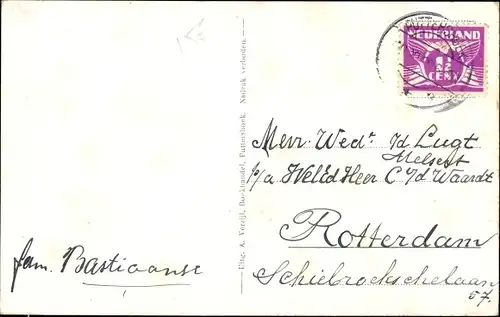 NEDERLAND
1½
CENT
Uitg. A. Verzijl, Boekhandel, Puttershoek. Nadruk verboden.
Mevr. Wedᵉ v/d Lugt
p/a WelEd Heer C v/d Waardt
Rotterdam
Schiebroekschelaan
67.
fam. Bastiaanse